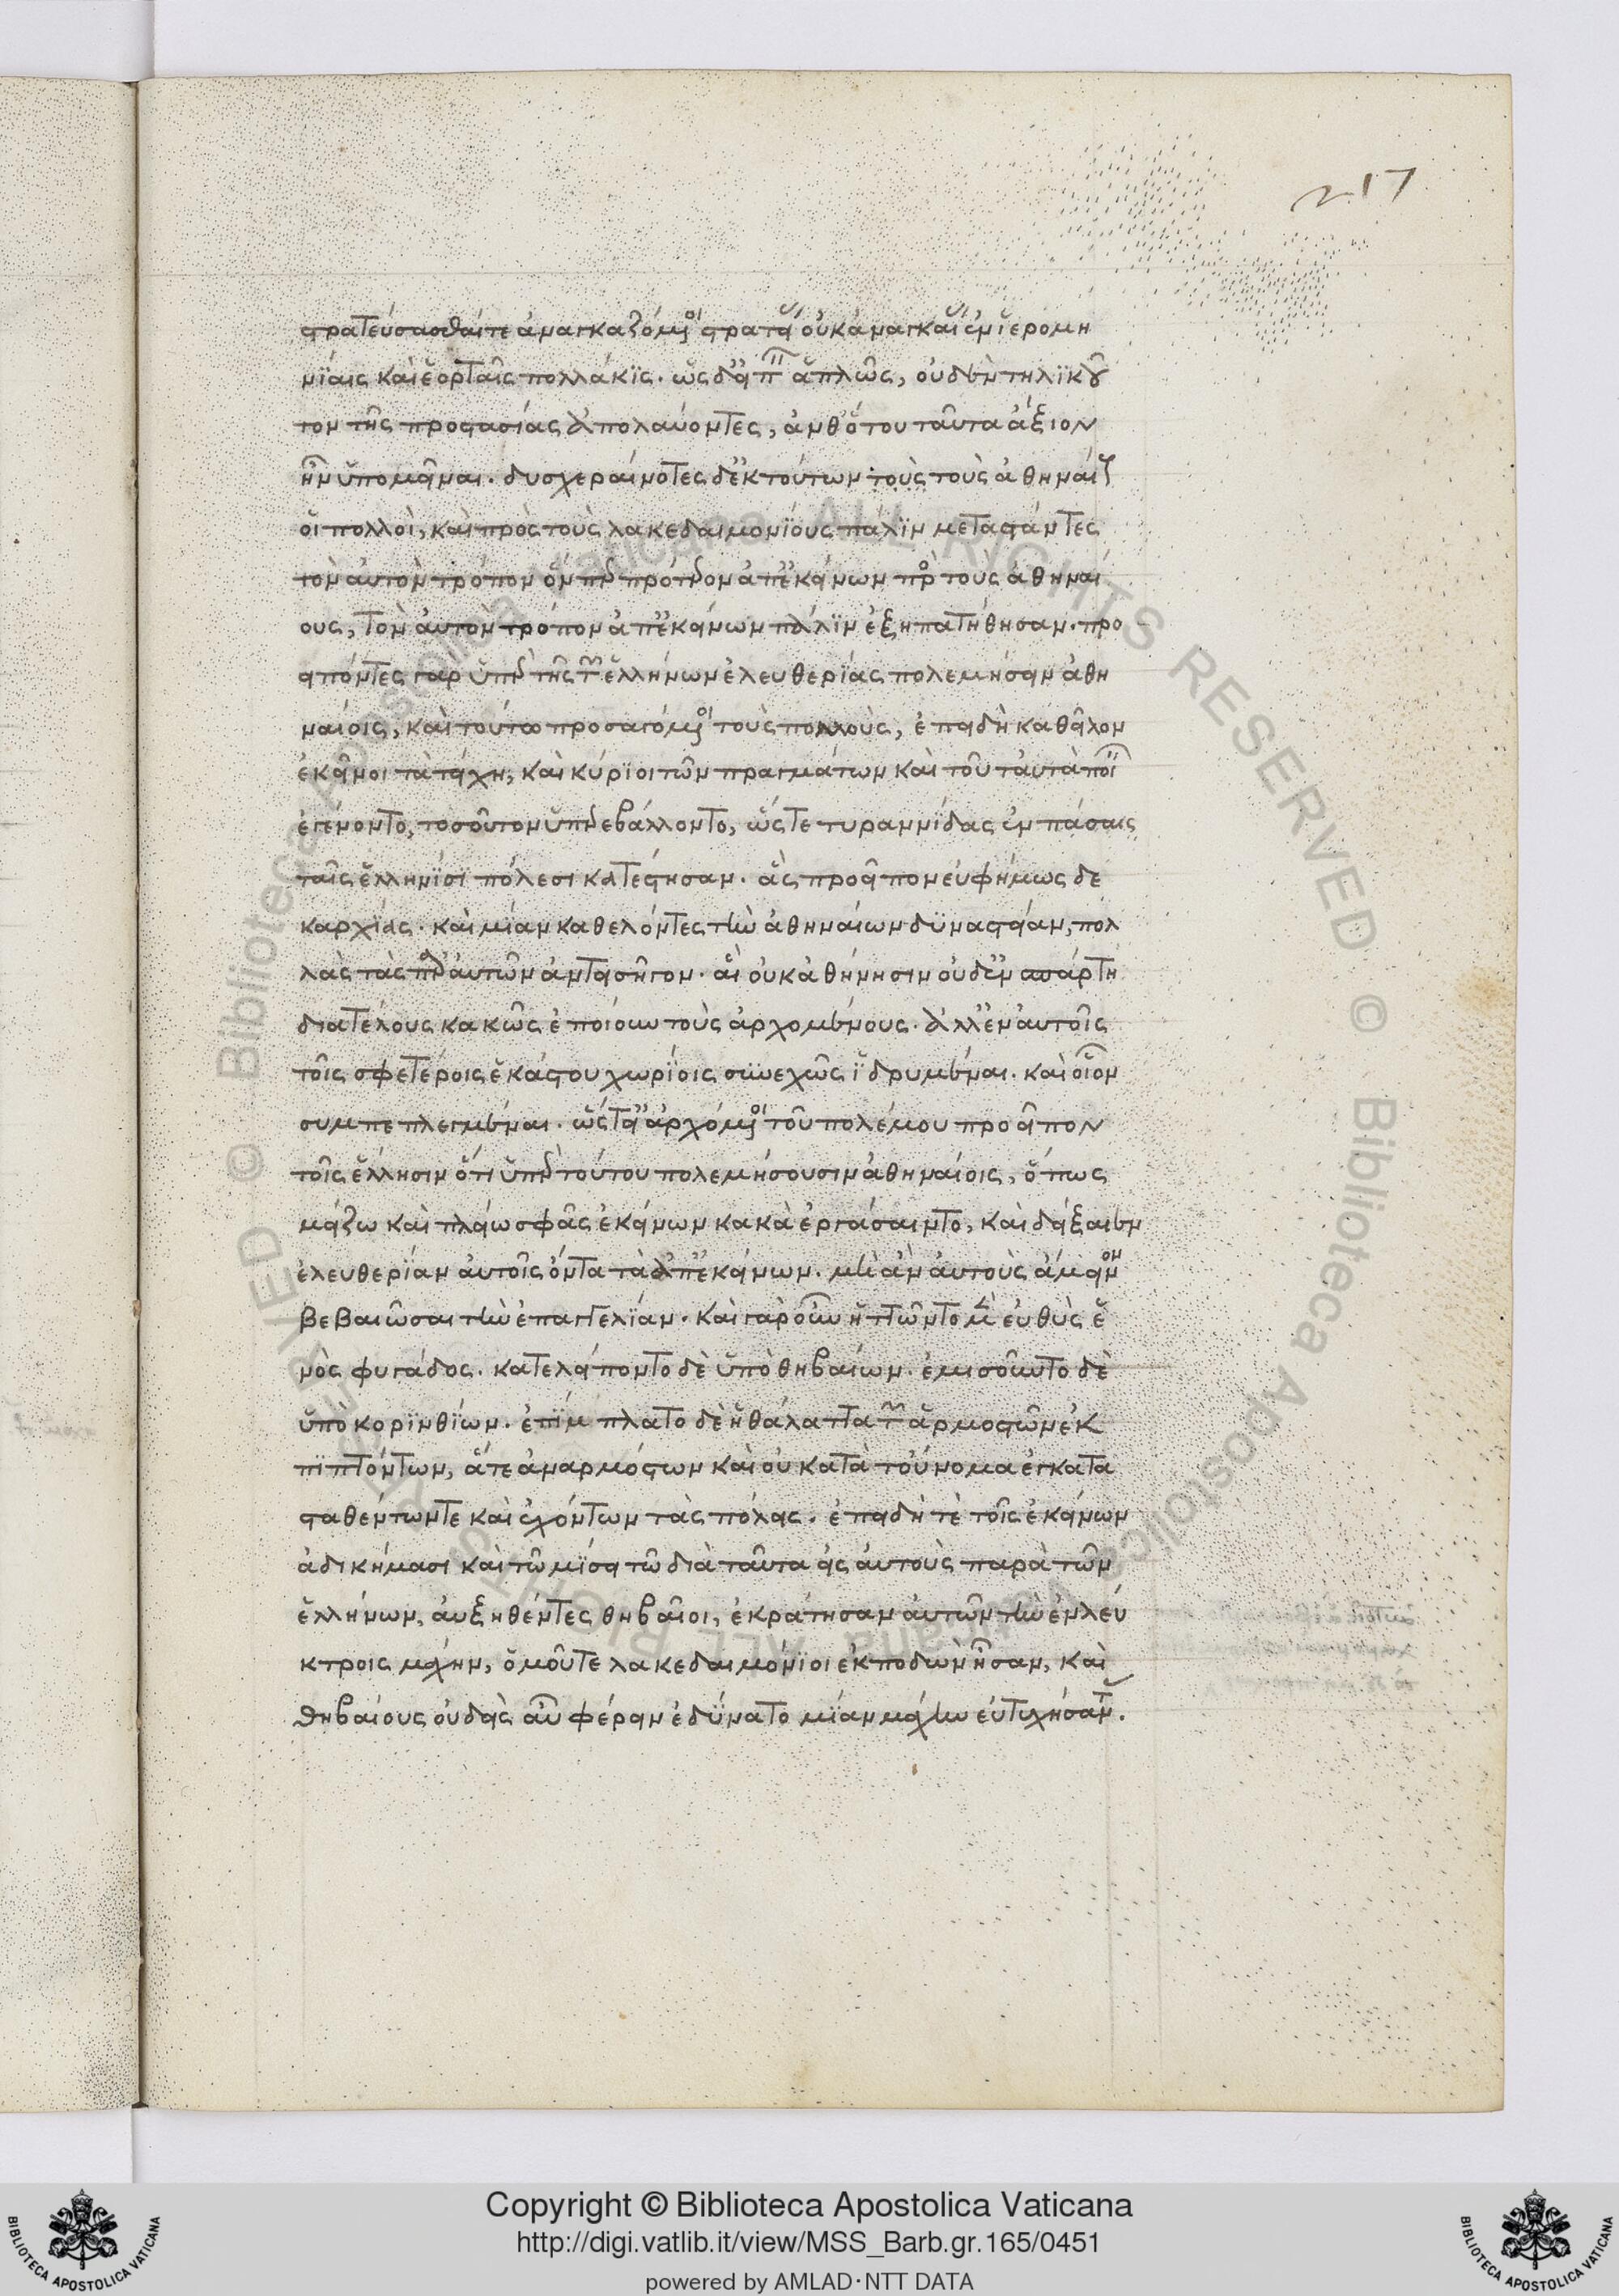 217
στρατεύσασθαί τε ἀναγκαζόμενοι στρατείας οὐκ ἀναγκαίας ἐν ἱερομη
νΐαις καὶ ἑορταῖς πολλάκϊς. ὡς δ' εἰπεῖν ἁπλῶς, οὐδὲν τηλϊκοῦ
τον τῆς προστασίας ἀπολαύοντες, ἀνθ' ὅτου ταῦτα ἄξιον
ἦν ὑπομεῖναι. δυσχεραίνοντες δ' ἐκ τούτων τοὺς τοὺς ἀθηναίους
οἱ πολλοὶ, καὶ πρὸς τοὺς λακεδαιμονΐους πάλϊν μεταστάντες
τὸν αὐτὸν τρόπον ὅνπερ πρότερον ἀπ' ἐκείνων πρὸς τοὺς ἀθηναί
ους, τὸν αὐτὸν τρόπον ἀπ' ἐκείνων πάλϊν ἐξηπατήθησαν. προ
ειπόντες γαρ ὑπὲρ τῆς τῶν ἑλλήνων ἐλευθερΐας πολεμήσειν ἀθη
ναίοις, καὶ τούτω προσαγόμενοι τοὺς πολλοὺς, ἐπειδὴ καθεῖλον
ἐκεῖνοι τὰ τείχη, καὶ κύρϊοι τῶν πραγμάτων καὶ τοῦ ταὐτὰ ποιεῖν
ἐγένοντο, τοσοῦτον ὑπερεβάλλοντο, ὥστε τυραννΐδας ἐν πάσαις
ταῖς ἑλληνΐσϊ πόλεσι κατέστησαν. ἃς προσεῖπον εὐφήμως δε
καρχΐας. καὶ μίαν καθελόντες τὴν ἀθηναίων δϋναστείαν, πολ
λὰς τὰς παρ' αὐτῶν ἀντεισῆγον. αἳ οὐκ ἀθήνησιν οὐδ' ἐν σπάρτη
διατέλους κακῶς ἐποίουν τοὺς ἀρχομένους. ἀλλ' ἐν αὐτοῖς
τοῖς σφετέροις ἑκάστου χωρΐοις συνεχῶς ἱδρυμέναι. καὶ οἷον
συμπεπλεγμέναι. ὥστ' εἰ ἀρχόμενοι τοῦ πολέμου προεῖπον
τοῖς ἕλλησιν ὅτι ὑπὲρ τούτου πολεμήσουσιν ἀθηναίοις, ὅπως
μείζω καὶ πλείω σφᾶς ἐκείνων κακὰ ἐργάσαιντο, καὶ δείξαιεν
ἐλευθερΐαν αὐτοῖς ὄντα τὰ ἀπ' ἐκείνων. μὴ ἂν αὐτοὺς ἄμεινον
βεβαιῶσαι τὴν ἐπαγγελΐαν. καὶ γὰρ οὖν ἡττῶντο μὲν εὐθὺς ἑ
νὸς φυγάδος. κατελείποντο δὲ ὑπὸ θηβαίων. ἐμισοῦντο δὲ
ὑπὸ κορϊνθΐων. ἐπΐμπλατο δὲ ἡ θάλαττα τῶν ἁρμοστῶν ἐκ
πϊπτόντων, ἅτε ἀναρμόστων καὶ οὐ κατὰ τοὔνομα ἐγκατα
σταθέντων τε καὶ ἐχόντων τὰς πόλεις. ἐπειδή τε τοῖς ἐκείνων
ἀδικήμασι καὶ τῶ μΐσει τῶ διὰ ταῦτα εἰς αὐτοὺς παρὰ τῶν
ἑλλήνων, αὐξηθέντες θηβαῖοι, ἐκράτησαν αὐτῶν τὴν ἐν λεύ
κτροις μάχην, ὁμοῦ τε λακεδαιμόνϊοι ἐκποδὼν ἦσαν, καὶ
θηβαίους οὐδεὶς αὖ φέρειν ἐδΰνατο μίαν μάχην εὐτυχήσαντας.